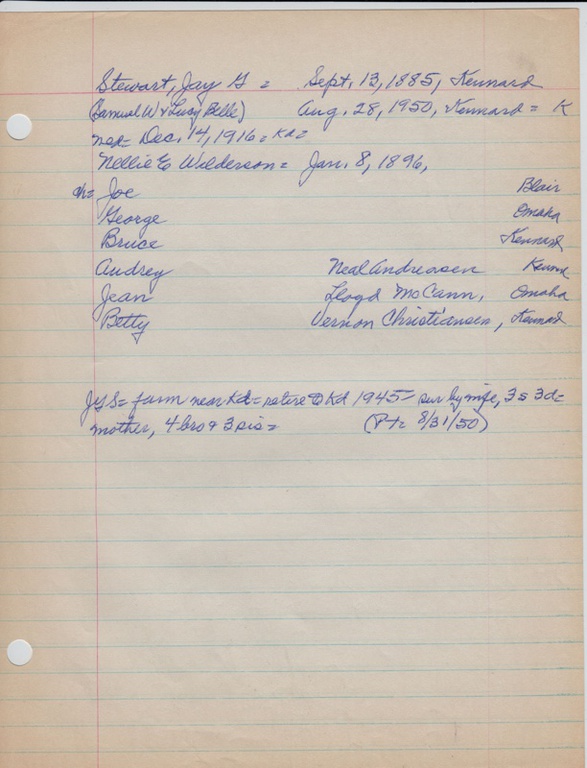 Stewart, Jay G = Sept. 13, 1885, Kennard
(Samuel W & Lucy Belle) Aug. 28, 1950, Kennard = K
md= Dec. 14, 1916 = Kd =
Nellie E Wilderson = Jan. 8, 1896,
ch= Joe Blair
George Omaha
Bruce Kennard
Audrey Neal Andreasen Kennd
Jean Lloyd McCann, Omaha
Betty Vernon Christiansen, Kennard
JGS= farm near Kd= retire to Kd 1945= sur by wife, 3s 3d=
mother, 4 bro & 3 sis= (Pt= 8/31/50)